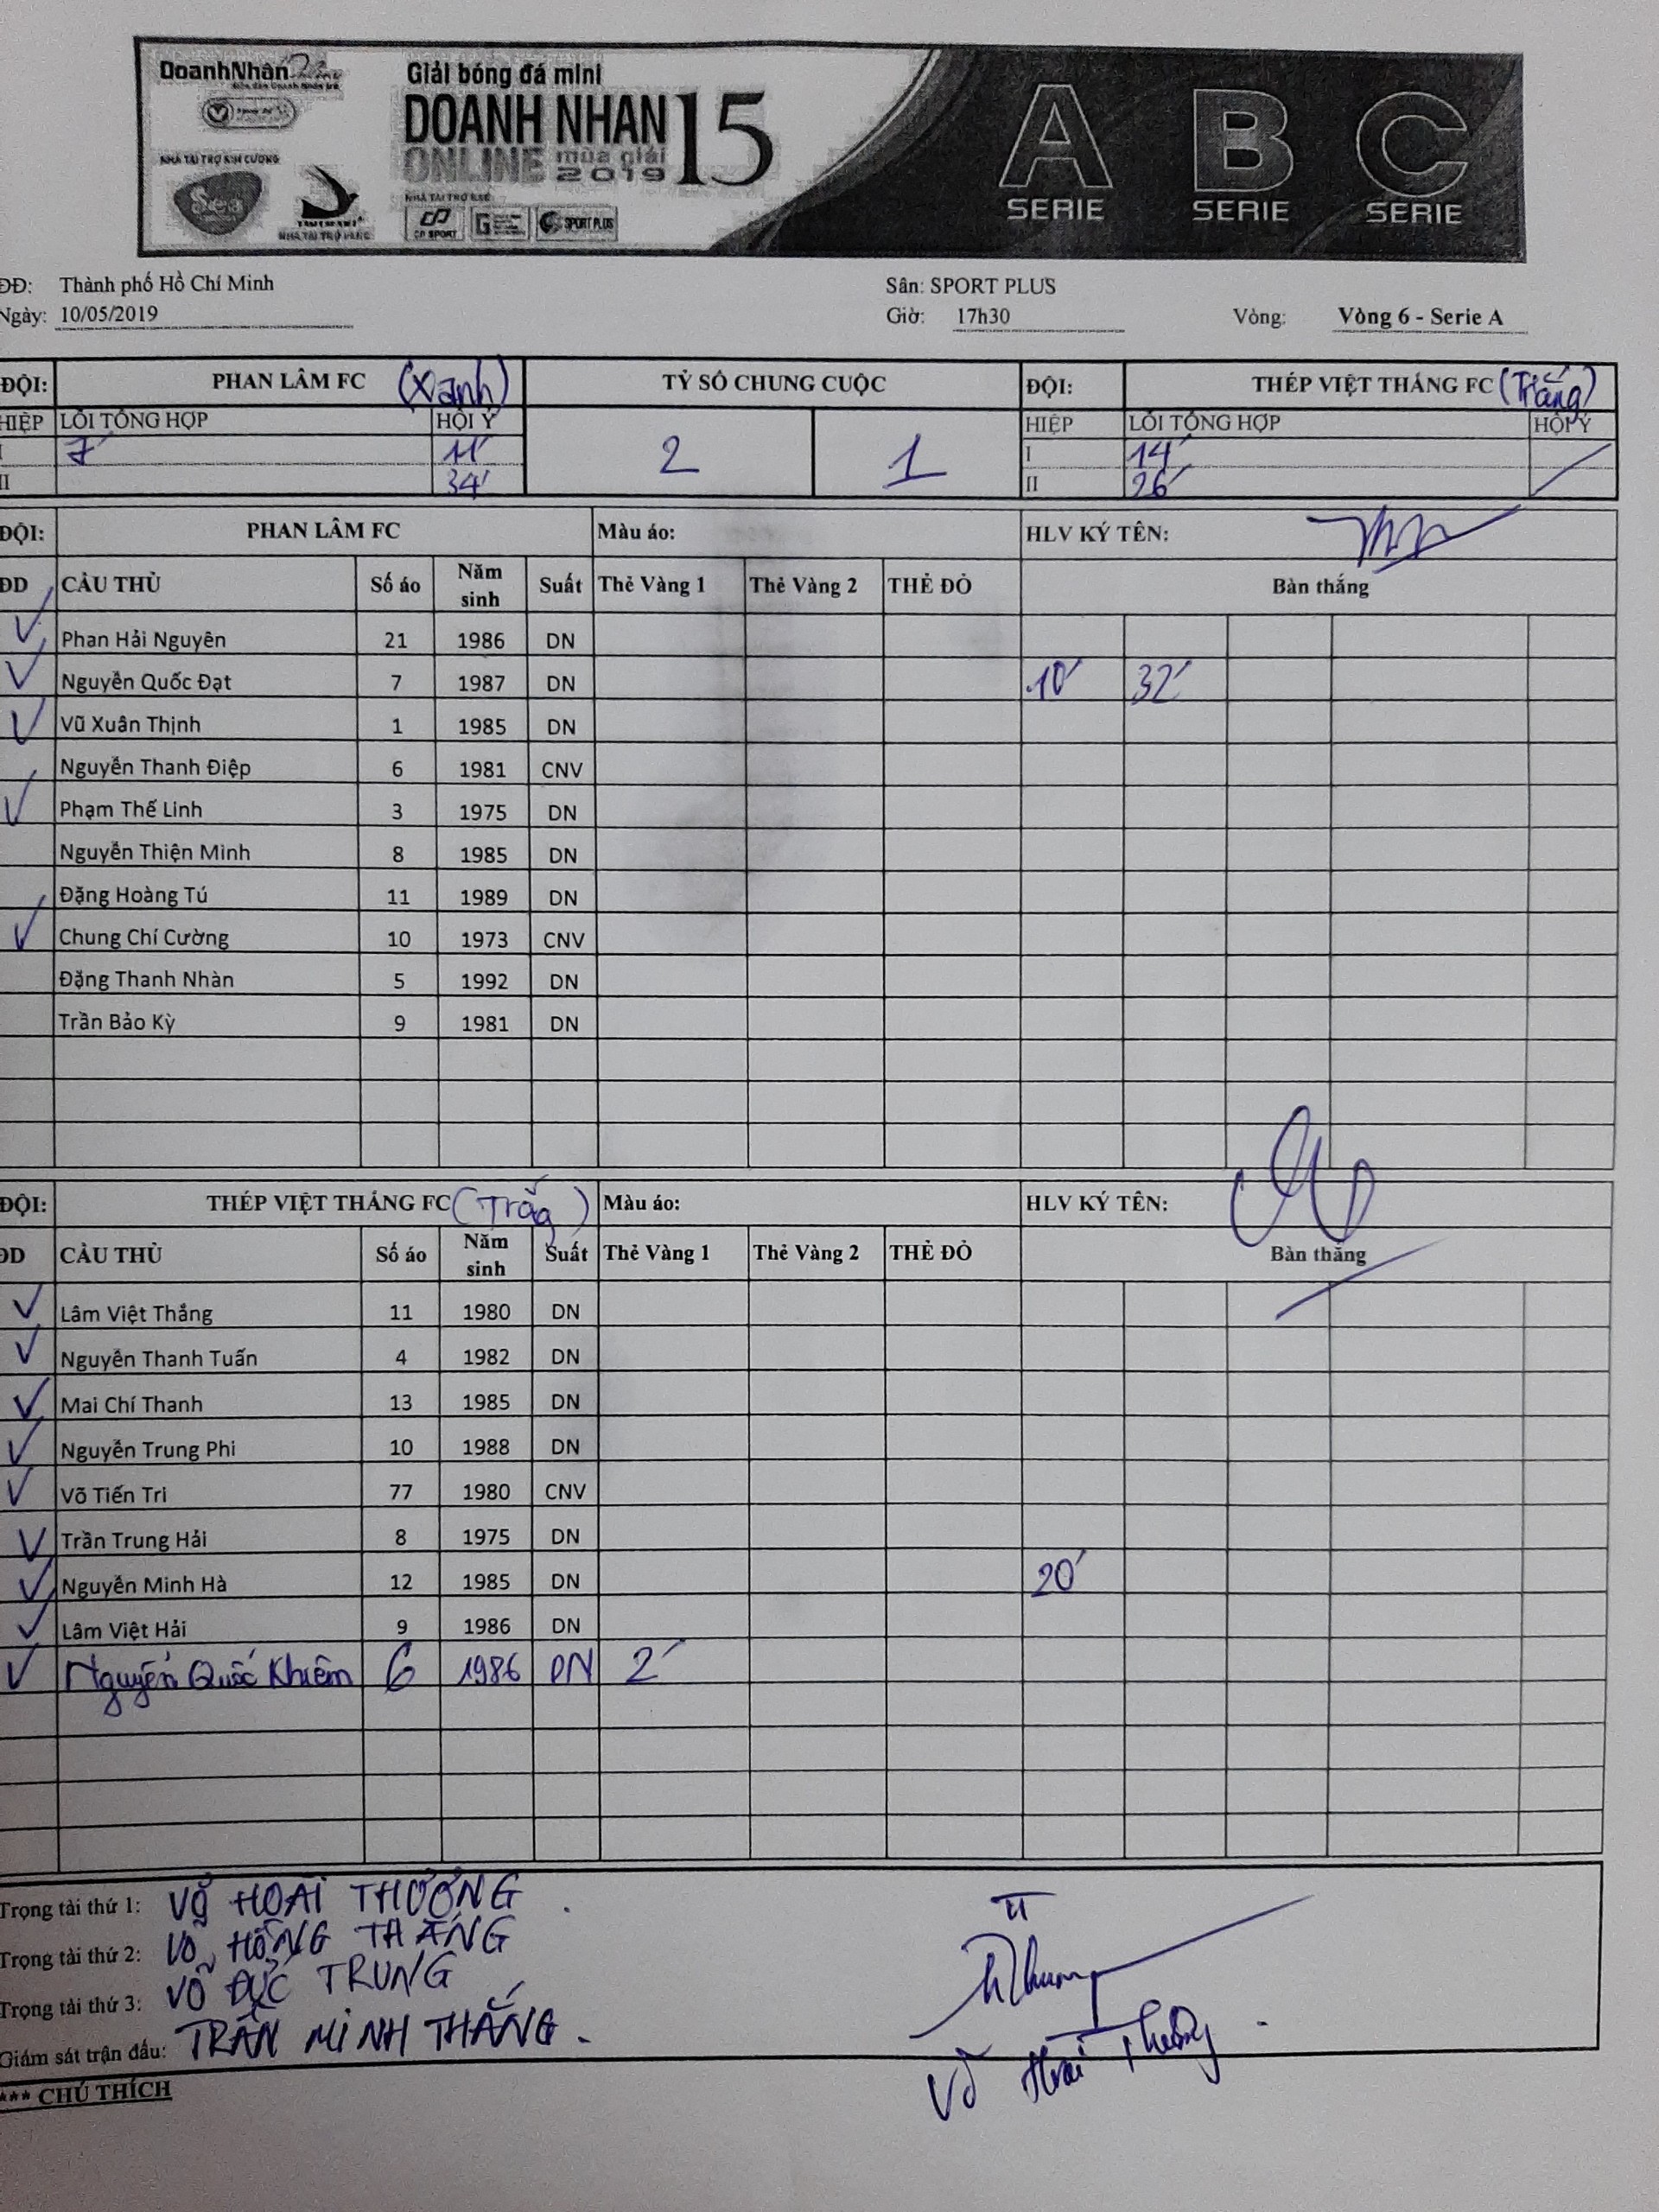 DoanhNhân
NHÀ TÀI TRỢ KIM CƯƠNG
NHÀ TÀI TRỢ VÀNG
Giải bóng đá mini
DOANH NHAN 15
ONLINE mùa giải 2019
CP SPORT
SPORT PLUS
A SERIE B SERIE C SERIE
ĐĐ: Thành phố Hồ Chí Minh Sân: SPORT PLUS
Ngày: 10/05/2019 Giờ: 17h30 Vòng: Vòng 6 - Serie A
ĐỘI: PHAN LÂM FC (Xanh) TỶ SỐ CHUNG CUỘC ĐỘI: THÉP VIỆT THẮNG FC (Trắng)
HIỆP LỖI TỔNG HỢP HỘI Ý 2 1 HIỆP LỖI TỔNG HỢP HỘI Ý
I 7' 11' I 14'
II 34' II 26'
ĐỘI: PHAN LÂM FC Màu áo: HLV KÝ TÊN:
ĐD CẦU THỦ Số áo Năm sinh Suất Thẻ Vàng 1 Thẻ Vàng 2 THẺ ĐỎ Bàn thắng
Phan Hải Nguyên 21 1986 DN
Nguyễn Quốc Đạt 7 1987 DN 10' 32'
Vũ Xuân Thịnh 1 1985 DN
Nguyễn Thanh Điệp 6 1981 CNV
Phạm Thế Linh 3 1975 DN
Nguyễn Thiện Minh 8 1985 DN
Đặng Hoàng Tú 11 1989 DN
Chung Chí Cường 10 1973 CNV
Đặng Thanh Nhàn 5 1992 DN
Trần Bảo Kỳ 9 1981 DN
ĐỘI: THÉP VIỆT THẮNG FC (Trắng) Màu áo: HLV KÝ TÊN:
ĐD CẦU THỦ Số áo Năm sinh Suất Thẻ Vàng 1 Thẻ Vàng 2 THẺ ĐỎ Bàn thắng
Lâm Việt Thắng 11 1980 DN
Nguyễn Thanh Tuấn 4 1982 DN
Mai Chí Thanh 13 1985 DN
Nguyễn Trung Phi 10 1988 DN
Võ Tiến Tri 77 1980 CNV
Trần Trung Hải 8 1975 DN
Nguyễn Minh Hà 12 1985 DN 20'
Lâm Việt Hải 9 1986 DN
Nguyễn Quốc Khiêm 6 1986 DN 2'
Trọng tài thứ 1: VÕ HOÀI THƯƠNG
Trọng tài thứ 2: VÕ HỒNG THẮNG
Trọng tài thứ 3: VÕ ĐỨC TRUNG
Giám sát trận đấu: TRẦN MINH THẮNG.
TT
Võ Hoài Thương
*** CHÚ THÍCH